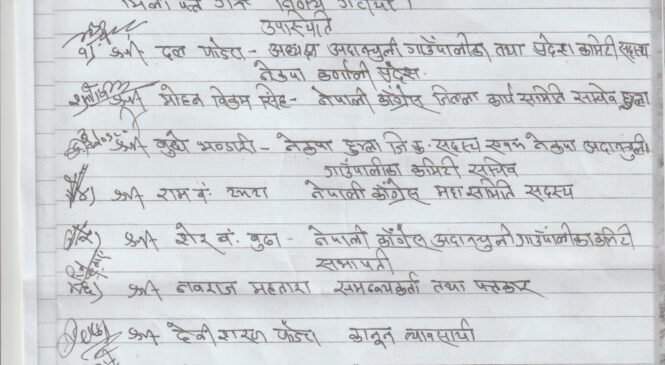 मिलापत्र गर्ने निर्णय गरियो।
उपस्थिति
१) श्री दल फडेरा - अध्यक्ष अदानचुली गाउँपालिका तथा प्रदेश कमिटी सदस्य
नेकपा कर्णाली प्रदेश
श्री मोहन विक्रम सिंह - नेपाली काँग्रेस जिल्ला कार्य समिति सचिव हुम्ला
श्री बुद्धी भण्डारी - नेकपा हुम्ला जि.क. सदस्य एवम नेकपा अदानचुली
गाउँपालिका कमिटी सचिव
४) श्री राम बं. नेपाली काँग्रेस महासमिति सदस्य
५) श्री शेर बं. बुढा - नेपाली काँग्रेस अदानचुली गाउँपालिका कमिटी
सभापती
६) श्री नवराज महतारा समन्वयकर्ता तथा पत्रकार
७) श्री देवी शरण फडेरा कानून व्यावसायी